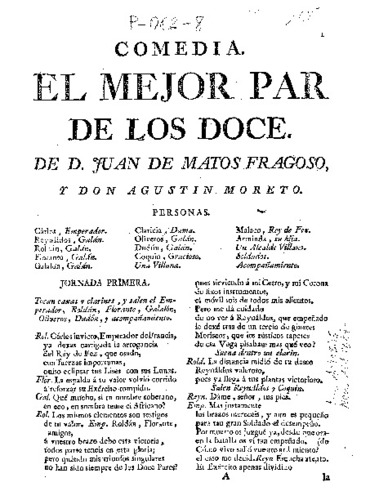 P-062-8
1
COMEDIA.
EL MEJOR PAR
DE LOS DOCE.
DE D. JUAN DE MATOS FRAGOSO,
Y DON AGUSTIN MORETO.
PERSONAS.
Cárlos, Emperador.
Reynaldos, Galán.
Roldán, Galán.
Florante, Galán.
Galalón, Galán.
Claricia, Dama.
Oliveros, Galán.
Dudón, Galán.
Coquin, Gracioso.
Una Villana.
Malaco, Rey de Fez.
Arminda, su hija.
Un Alcalde Villano.
Soldados.
Acompañamiento.
JORNADA PRIMERA.
Tocan caxas y clarines, y salen el Em-
perador, Roldán, Florante, Galalón,
Oliveros, Dudón, y acompañamiento.
Rol. Cárlos invicto, Emperador de Francia,
ya dexas castigada la arrogancia
del Rey de Fez, que osado,
con fuerzas importunas,
quiso eclipsar tus Lises con sus Lunas.
Flor. La espalda á tu valor volvió corrido
á reforzar su Exército rompido.
Gal. Qué mucho, si tu nombre soberano,
en eco, en sombra teme el Africano?
Rol. Los mismos elementos son testigos
de tu valor. Emp. Roldán, Florante,
amigos,
á vuestro brazo debo esta victoria,
todos parte teneis en esta gloria;
pero quándo mis triunfos singulares
no han sido siempre de los Doce Pares?
pues sirviendo á mi Cetro, y mi Corona
de fixos instrumentos,
el móvil sois de todos mis alientos.
Pero me dá cuidado
de no ver á Reynaldos, que empeñado
le dexé tras de un tercio de ginetes
Moriscos, que los rústicos tapetes
de esa Vega pisaban mas qué veo?
Suena dentro un clarin.
Rold. La distancia midió de su deseo
Reynaldos valeroso,
pues ya llega á tus plantas victorioso.
Salen Reynaldos y Coquin.
Reyn. Dáme, señor, tus pies.
Emp. Mas justamente
los brazos
tan gran Soldado el desempeño.
Por muerto os juzgué ya, desde que osa-
en la batalla os ví tan empeñado. (do
Cómo vivo salís vuestro ardimiento?
el caso me decid. Reyn. Escucha atento.
Tu Exército apenas dividido
A
la